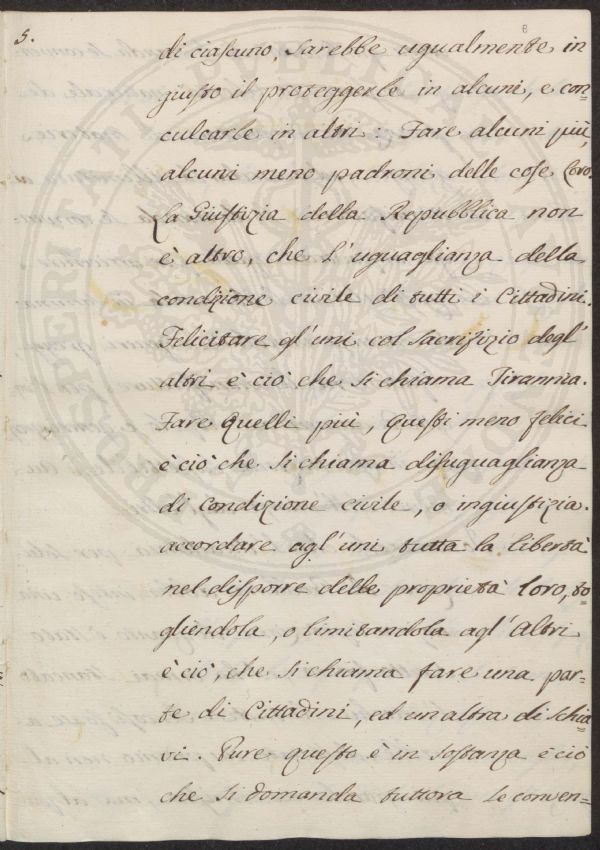 5.
8
di ciascuno, sarebbe ugualmente in
giusto il proteggerle in alcuni, e con=
culcarle in altri: Fare alcuni più,
alcuni meno padroni delle cose loro.
La Giustizia della Repubblica non
è altro, che l'uguaglianza della
condizione civile di tutti i Cittadini.
Felicitare gl'uni col sacrifizio degl'
altri è ciò che si chiama Tirannia.
Fare quelli più, questi meno felici
è ciò che si chiama disuguaglianza
di condizione civile, o ingiustizia.
accordare agl'uni tutta la libertà
nel disporre delle proprietà loro, to=
gliendola, o limitandola agl'Altri
è ciò, che si chiama fare una par=
te di Cittadini, ed un altra di schia=
vi. Pure questo è in sostanza è ciò
che si domanda tuttora le conven=